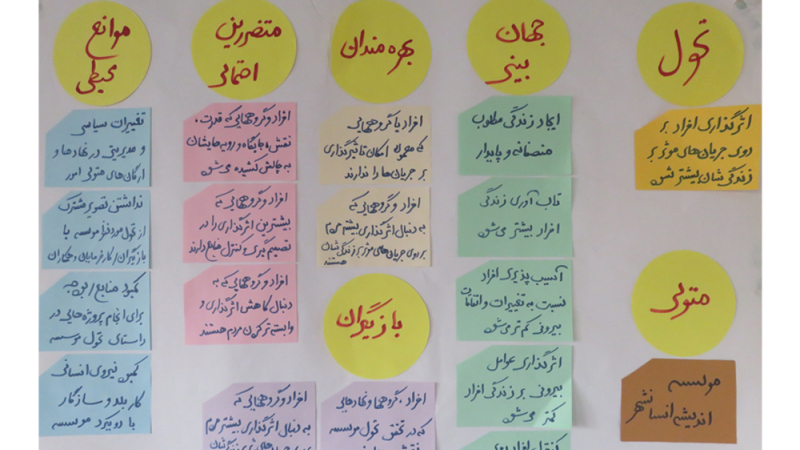 تحول
اثرگذاری افراد بر
روی جریان‌های موثر بر
زندگی‌شان بیشتر شود
متولی
موسسه
اندیشه انسانشهر
جهان
بینی
ایجاد زندگی مطلوب
منصفانه و پایدار
تاب آوری زندگی
افراد بیشتر می‌شود
آسیب پذیری افراد
نسبت به تغییرات و اتفاقات
بیرونی کم‌تر می‌شود
اثرگذاری عوامل
بیرونی بر زندگی افراد
کمتر می‌شود
بهره‌مندان
افراد یا گروههایی
که معمولا امکان تاثیرگذاری
بر جریان‌ها را ندارند
افراد و گروههایی که
به دنبال اثرگذاری بیشتر مردم
بر روی جریان‌های موثر بر زندگی‌شان
هستند
بازیگران
افراد، گروهها و نهادهایی
که در تحقق تحول موسسه
افراد و گروههایی که
به دنبال اثرگذاری بیشتر مردم
متضررین
احتمالی
افراد و گروههایی که قدرت،
نقش، جایگاه و رویه‌هایشان
به چالش کشیده می‌شود
افراد و گروههایی که
بیشترین اثرگذاری را در
تصمیم‌گیری و کنترل منابع دارند
افراد و گروههایی که به
دنبال کاهش اثرگذاری و
وابسته‌تر کردن مردم هستند
موانع
محیطی
تغییرات سیاسی
و مدیریتی در نهادها و
ارگان‌های متولی امور
نداشتن تصویر مشترک
از تحول مورد نظر موسسه با
بازیگران/کارفرمایان و همکاران
کمبود منابع/بودجه
برای انجام پروژه‌هایی در
راستای تحول موسسه
کمبود نیروی انسانی
کاربلد و سازگار
با رویکرد موسسه